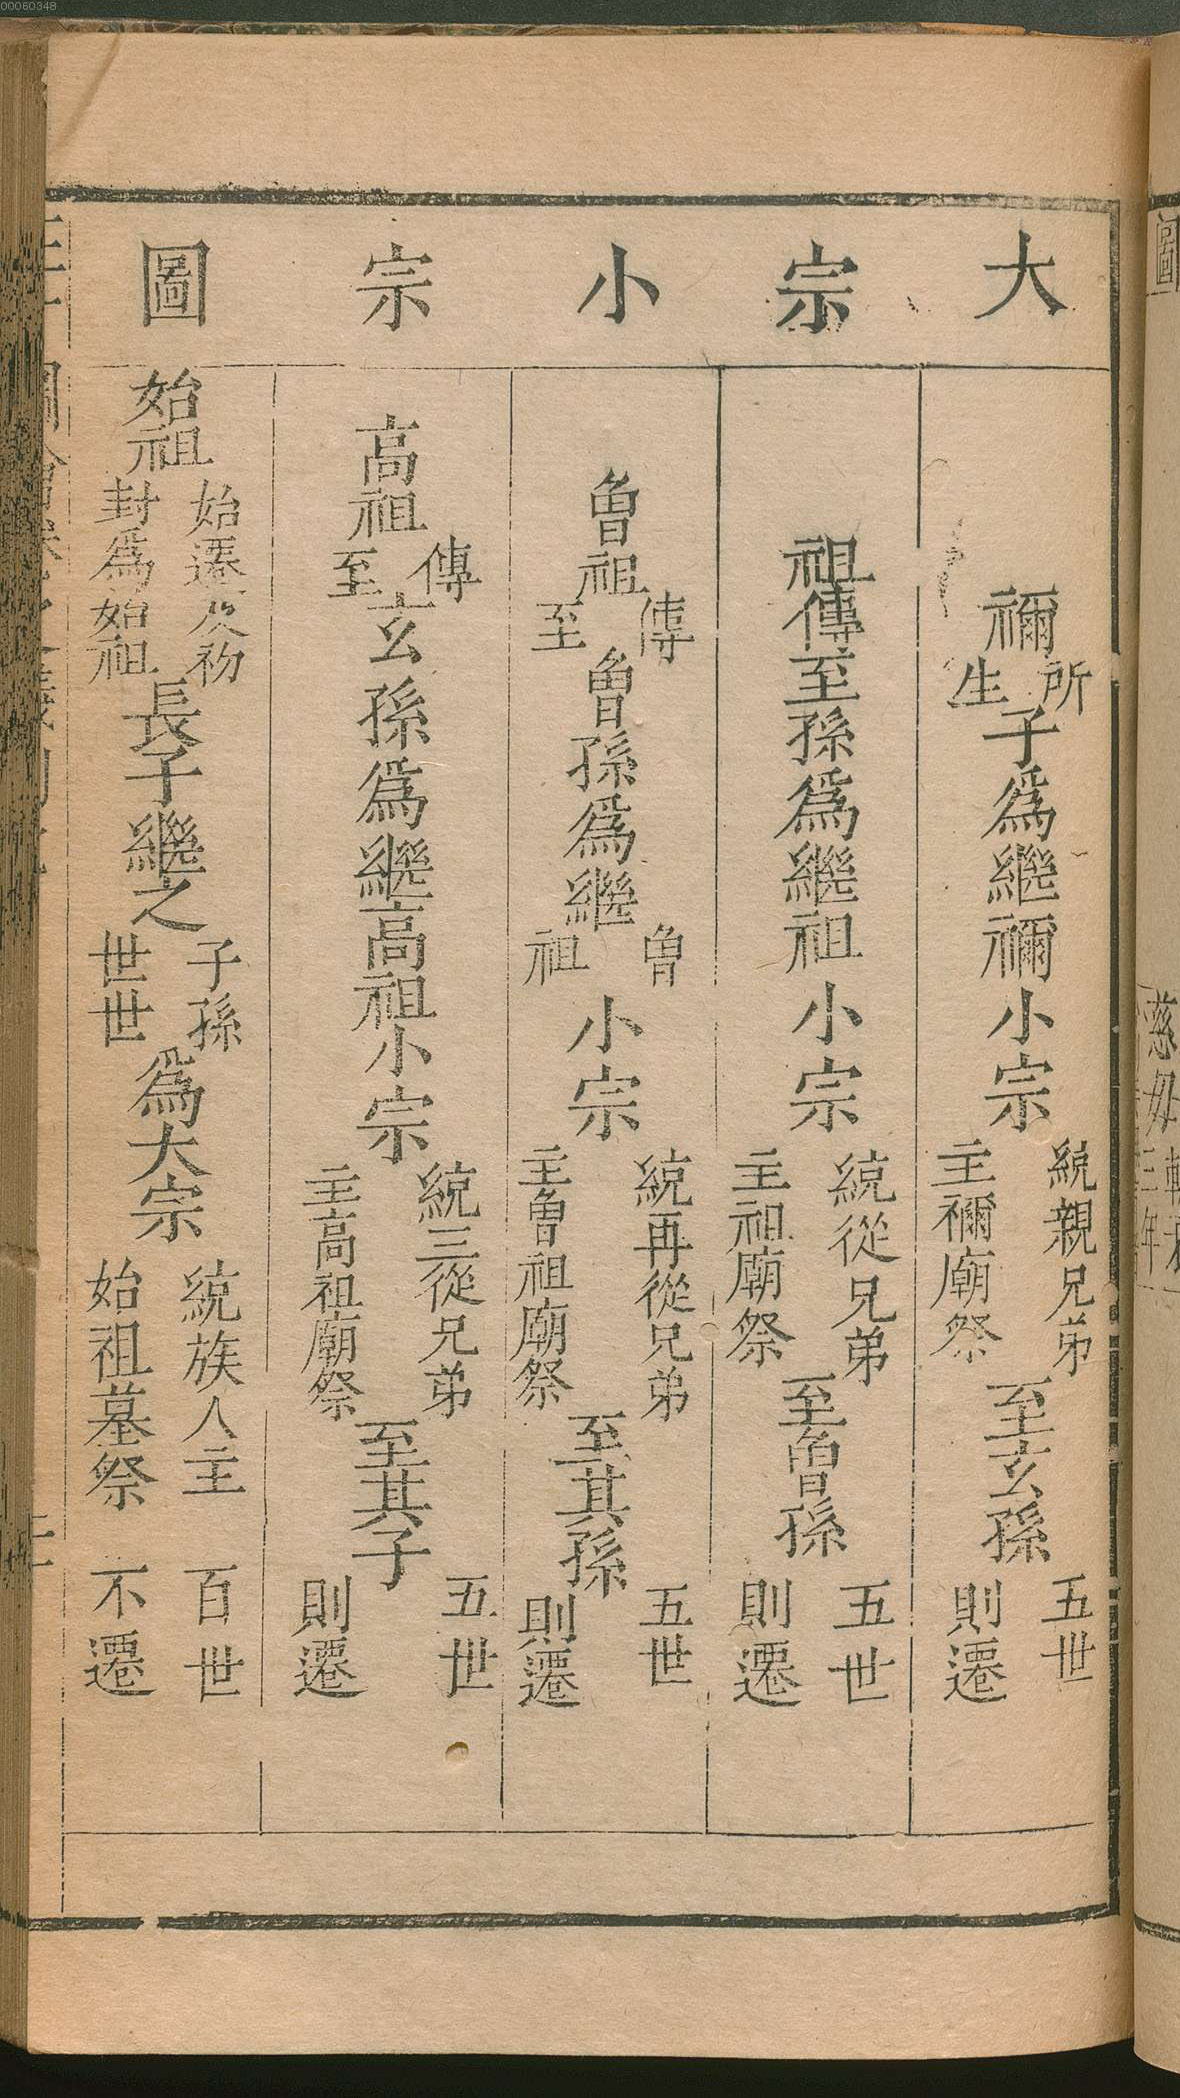 00060348
大宗小宗圖
禰所生子為繼禰小宗統親兄弟主禰廟祭至玄孫五世則遷
祖傳至孫為繼祖小宗統從兄弟主祖廟祭至曾孫五世則遷
曾祖傳至曾孫為繼曾祖小宗統再從兄弟主曾祖廟祭至其孫五世則遷
高祖傳至玄孫為繼高祖小宗統三從兄弟主高祖廟祭至其子五世則遷
始祖始遷及初封為始祖長子繼之子孫世世為大宗統族人主始祖墓祭百世不遷
圖
慈母
三年